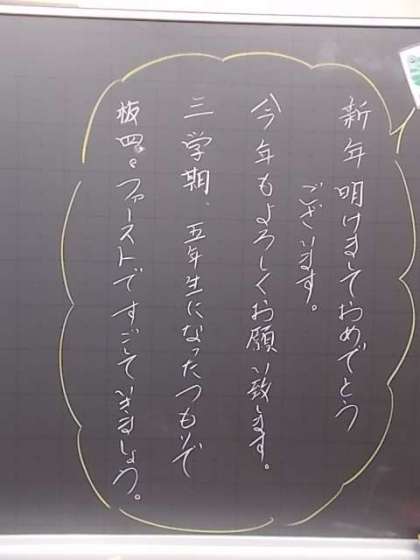 新年明けましておめでとう
ございます。
今年もよろしくお願い致します。
三学期、五年生になったつもりで
板四・ファーストですごしていきましょう。